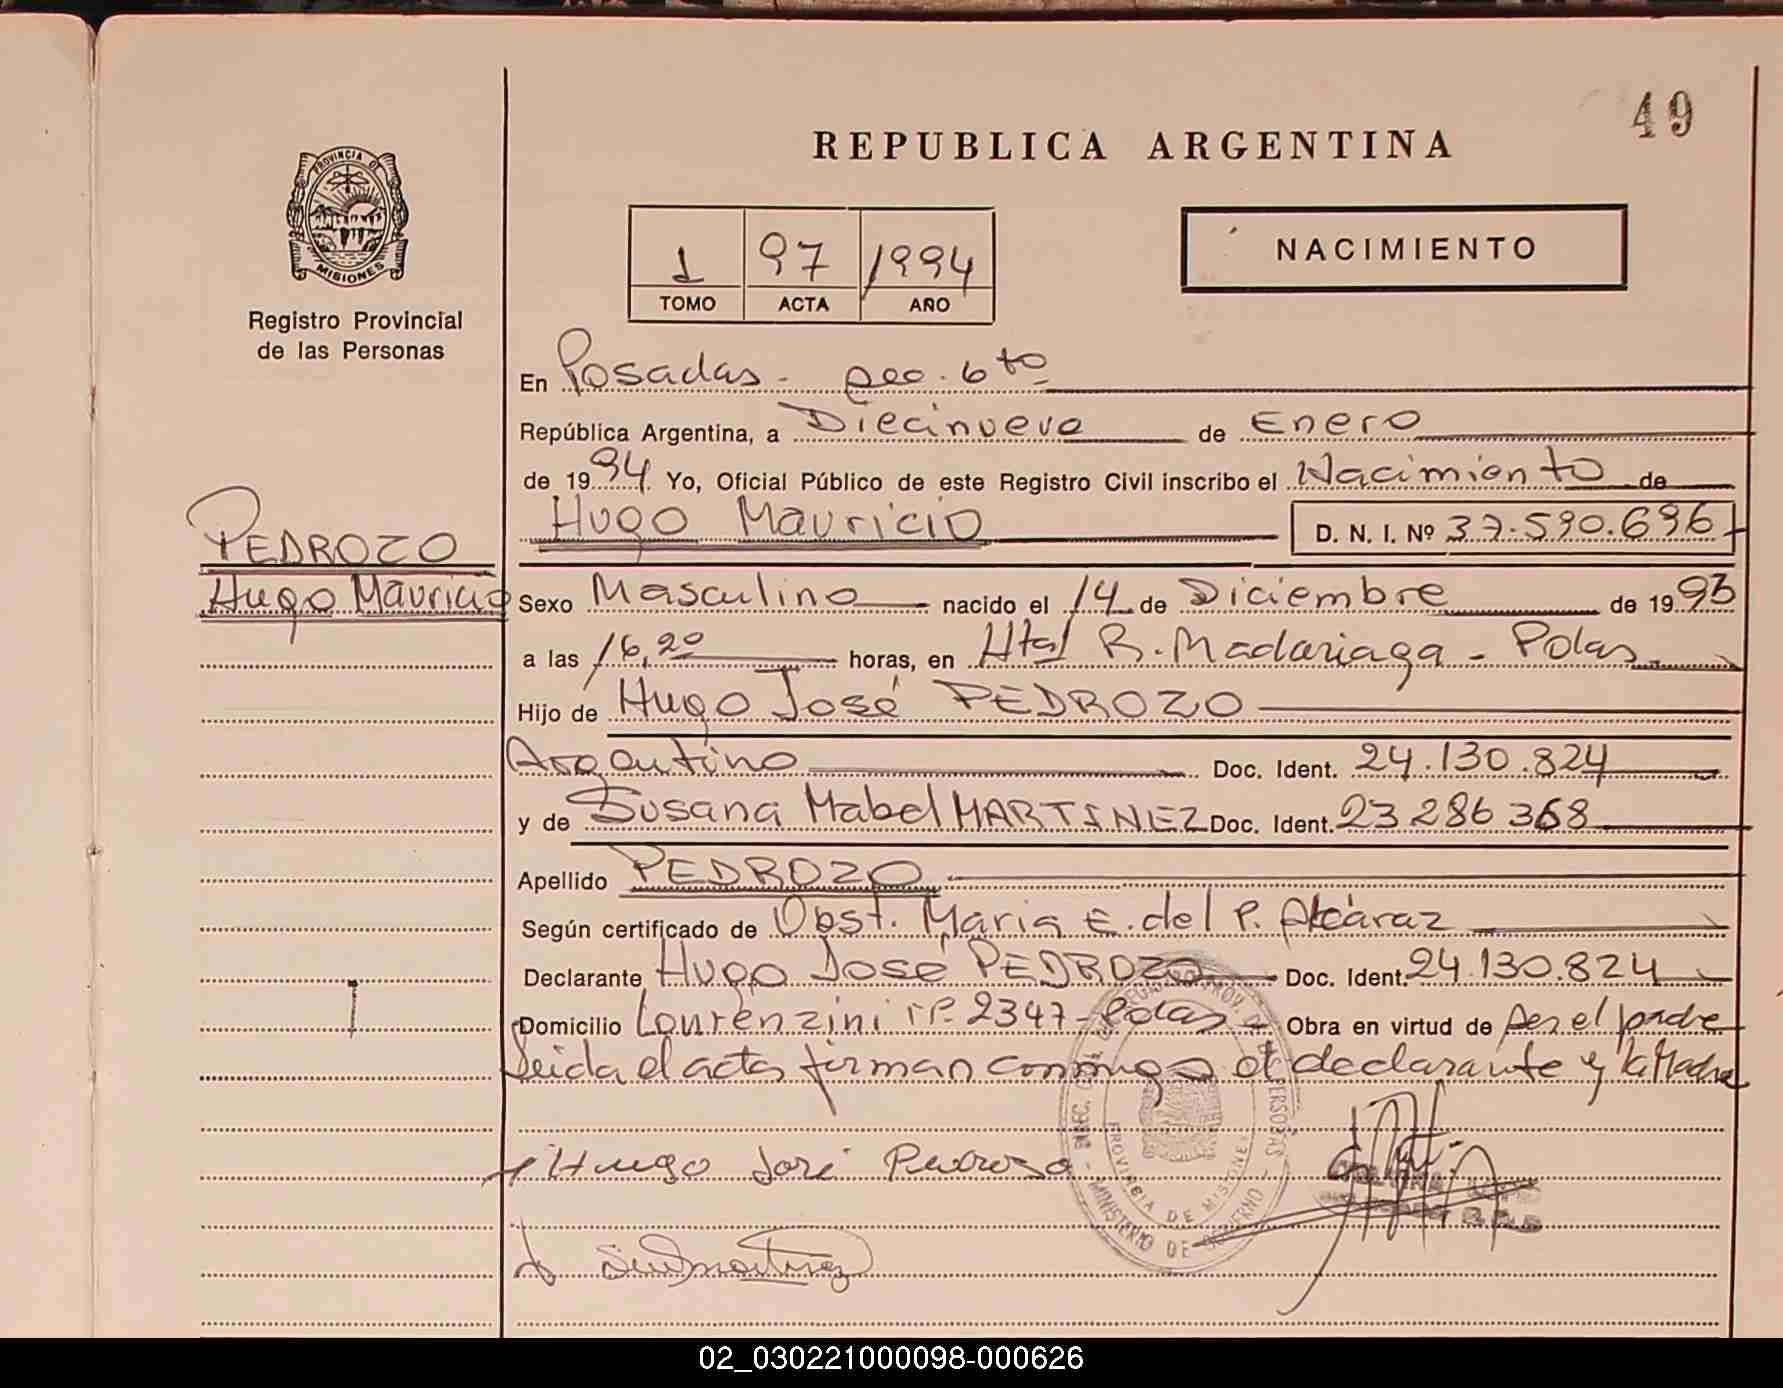 49
REPUBLICA ARGENTINA
PROVINCIA DE
MISIONES
Registro Provincial
de las Personas
1 97 1994
TOMO ACTA AÑO
NACIMIENTO
En Posadas - Sec. 6to
República Argentina, a Diecinueve de Enero
de 1994 Yo, Oficial Público de este Registro Civil inscribo el Nacimiento de
Hugo Mauricio D. N. I. Nº 37.590.696
PEDROZO
Hugo Mauricio
Sexo Masculino nacido el 14 de Diciembre de 1993
a las 16,20 horas, en Htal R. Madariaga - Pdas
Hijo de Hugo José PEDROZO
Argentino Doc. Ident. 24.130.824
y de Susana Mabel MARTINEZ Doc. Ident. 23 286 368
Apellido PEDROZO
Según certificado de Obst. Maria E. del P. Alcaraz
Declarante Hugo José PEDROZO Doc. Ident. 24.130.824
Domicilio Lourenzini 2347 - Pdas Obra en virtud de ser el padre
Leida el acta firman conmigo el declarante y la Madre
Hugo José Pedrozo
DIREC. GRAL. DEL REGISTRO PROV. DE LAS PERSONAS
PROVINCIA DE MISIONES
MINISTERIO DE GOBIERNO
02_030221000098-000626